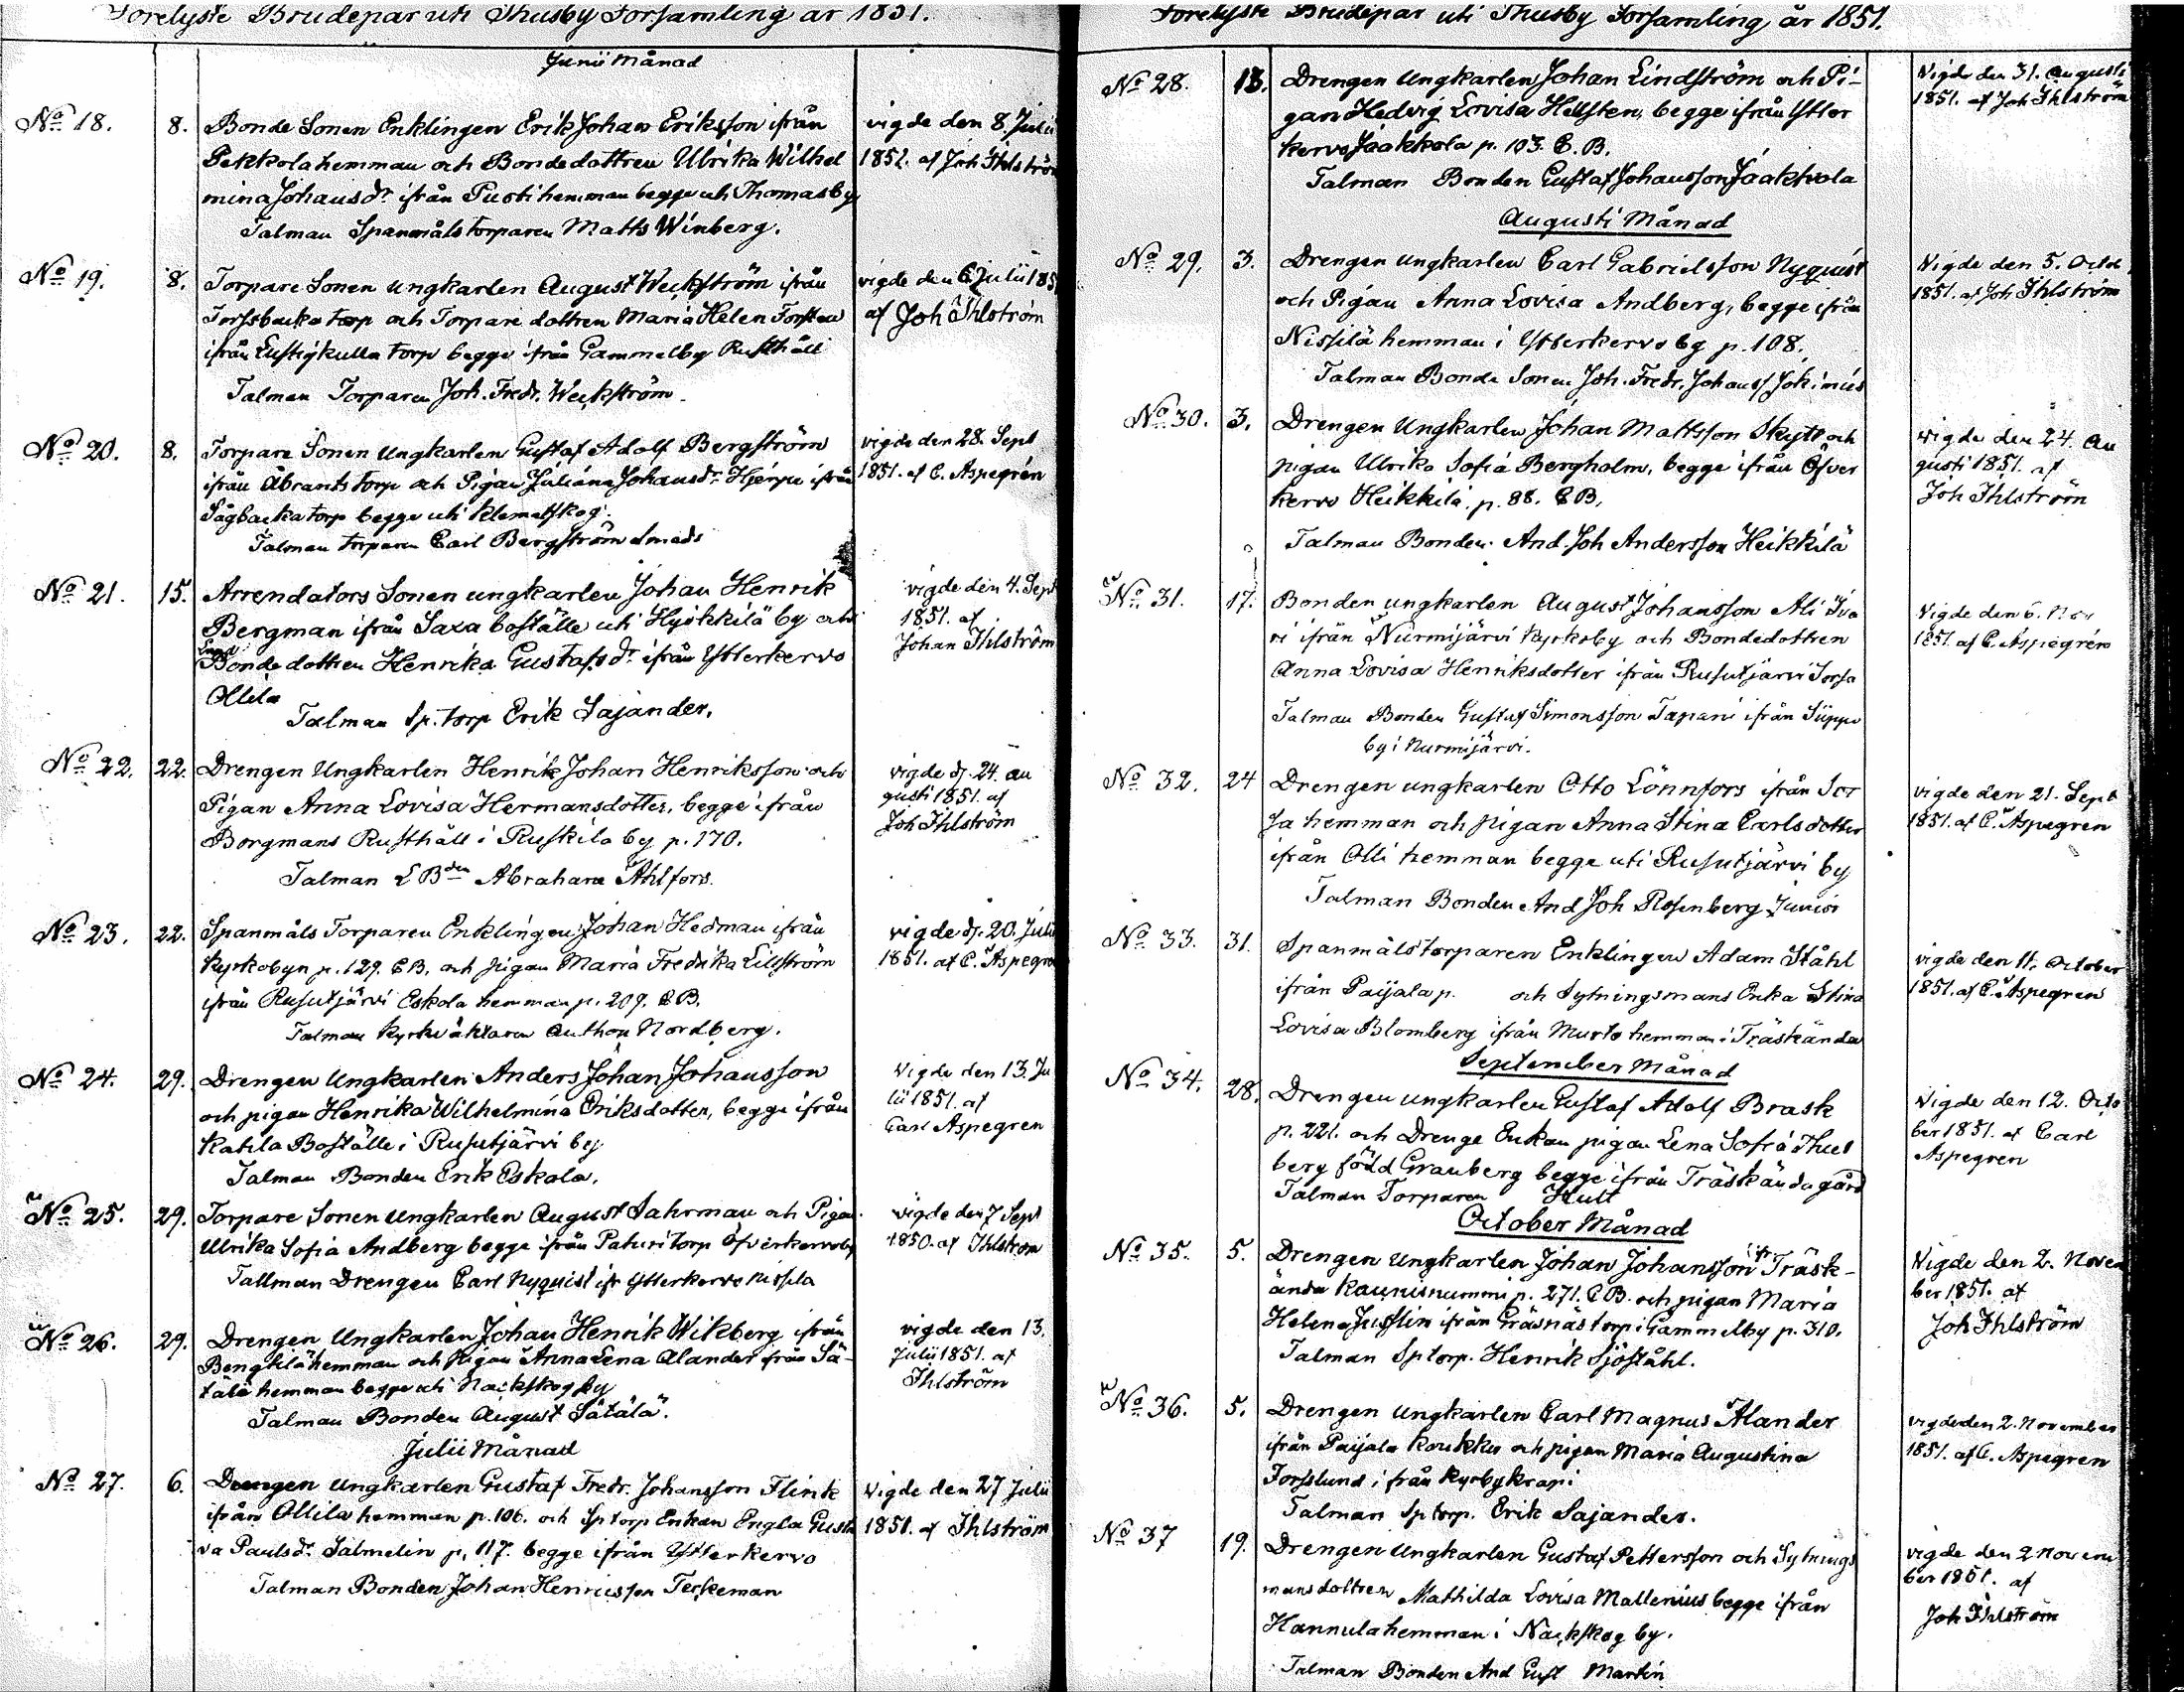 Förelyste Brudepar uti Thusby Församling år 1851.
Junii Månad
No 18. 8. Bonde Sonen Enklingen Erik Johan Eriksson ifrån
Pekkola hemman och Bondedottren Ulrika Wilhel
mina Johansdr ifrån Pusti hemman begge uti Thomasby
Talman Spanmåls torparen Matts Winberg.
vigde den 8. Julii
1851. af Joh Ihlström
No 19. 8. Torpare Sonen ungkarlen August Weckström ifrån
Forssbacka torp och Torpare dottren Maria Helen Forsten
ifrån Lustigkulla torp begge ifrån Gammelby Rusthåll
Talman Torparen Joh. Fredr. Weckström.
vigde den 6 Julii 185
af Joh Ihlström
No 20. 8. Torpare Sonen Ungkarlen Gustaf Adolf Bergström
ifrån Åbrants torp och Pigan Juliana Johansdr Hjerpe ifrån
Sågbacka torp begge uti Klemetskog.
Talman torparen Carl Bergström Smeds
vigde den 28. Sept
1851. af C. Aspegrén
No 21. 15. Arrendators Sonen ungkarlen Johan Henrik
Bergman ifrån Saxa boställe uti Hyökkilä by och
Land
Bonde dottren Henrika Gustafsdr ifrån Ytterkervo
Ollila
Talman Sp. torp Erik Sajander.
vigde den 4. Sept
1851. af
Johan Ihlström
No 22. 22. Drengen Ungkarlen Henrik Johan Henriksson och
Pigan Anna Lovisa Hermansdotter, begge ifrån
Borgmans Rusthåll i Ruskila by p. 170.
Talman L Bden Abraham Ahlfors.
vigde d. 24. Au
gusti 1851. af
Joh Ihlström
No 23. 22. Spanmåls Torparen Enklingen Johan Hedman ifrån
Kyrkobyn p. 129. C B. och pigan Maria Fredrika Lillström
ifrån Rusutjärvi Eskola hemman p. 209. C B.
Talman Kyrkväktaren Anthon Nordberg.
vigde d. 20. Julii
1851. af C. Aspegren
No 24. 29. Drengen Ungkarlen Anders Johan Johansson
och pigan Henrika Wilhelmina Eriksdotter, begge ifrån
Katila Boställe i Rusutjärvi by
Talman Bonden Erik Eskola.
Vigde den 13. Ju
lii 1851. af
Carl Aspegren
No 25. 29. Torpare Sonen Ungkarlen August Sahrman och Pigan
Ulrika Sofia Andberg begge ifrån Paturi torp Öfverkervoby
Tallman Drengen Carl Nyquist ifr Ytterkervo Nissila
vigde den 7 Sept
1850. af Ihlström
No 26. 29. Drengen Ungkarlen Johan Henrik Wikberg ifrån
Bengtilä hemman och Pigan Anna Lena Alander ifrån Sä-
tälä hemman begge uti Nackskog by
Talman Bonden August Sätälä.
vigde den 13.
Julii 1851. af
Ihlström
Julii Månad
No 27. 6. Drengen Ungkarlen Gustaf Fredr. Johansson Flink
ifrån Ollila hemman p. 106. och Sp torp Enkan Engla Gusta
va Paulsdr Salmelin p. 117. begge ifrån Ytterkervo
Talman Bonden Johan Henricsson Terkeman
Vigde den 27 Julii
1851. af Ihlström
Förelyste Brudepar uti Thusby Församling år 1851.
No 28. 13. Drengen Ungkarlen Johan Lindström och Pi-
gan Hedvig Lovisa Hellsten, begge ifrån Ytter
kervo Jaakkola p. 103. C. B.
Talman Bonden Gustaf Johansson Jaakkola
Vigde den 31. Augusti
1851. af Joh Ihlström
Augusti Månad
No 29. 3. Drengen ungkarlen Carl Gabrielsson Nyquist
och Pigan Anna Lovisa Andberg, begge ifrån
Nissilä hemman i Ytterkervo by p. 108.
Talman Bonde Sonen Joh. Fredr. Johanss Jokimies
Vigde den 5. Octo
1851. af Joh Ihlström
No 30. 3. Drengen Ungkarlen Johan Mattsson Skytt och
pigan Ulrika Sofia Bergholm, begge ifrån Öfver
kervo Heikkilä. p. 88. C B.
Talman Bonden And. Joh Andersson Heikkilä
vigde den 24. Au
gusti 1851. af
Joh Ihlström
No 31. 17. Bonden ungkarlen August Johansson Ali Iva
ri ifrån Nurmijärvi Kyrkoby och Bondedottren
Anna Lovisa Henriksdotter ifrån Rusutjärvi Sorsa
Talman Bonden Gustaf Simonsson Tapani ifrån Siippo
by i Nurmijärvi.
Vigde den 6. Nov
1851. af C. Aspegrén
No 32. 24 Drengen ungkarlen Otto Lönnfors ifrån Sor
sa hemman och pigan Anna Stina Carlsdotter
ifrån Olli hemman begge uti Rusutjärvi by
Talman Bonden And Joh Rosenberg Junior
vigde den 21. Sept
1851. af C. Aspegren
No 33. 31. Spanmåls torparen Enklingen Adam Ståhl
ifrån Paijala p. och Sytningsmans Enka Stina
Lovisa Blomberg ifrån Murto hemman i Träskända
vigde den 11. October
1851. af C. Aspegren
September Månad
No 34. 28. Drengen ungkarlen Gustaf Adolf Brask
p. 221. och Drenge Enkan pigan Lena Sofia Thus
berg född Granberg begge ifrån Träskända gård
Talman Torparen Hult
Vigde den 12. Octo
ber 1851. af Carl
Aspegren
October Månad
No 35. 5. Drengen Ungkarlen Johan Johansson ifr Träsk-
ända Kaunisnummi p. 271. C B. och pigan Maria
Helena Justlin ifrån Gräsnäs torp i Gammelby p. 310.
Talman Sp torp. Henrik Sjöståhl.
Vigde den 2. Novem
ber 1851. af
Joh Ihlström
No 36. 5. Drengen Ungkarlen Carl Magnus Alander
ifrån Paijala Koukku och pigan Maria Augustina
Forsslund ifrån Kyrbykrapi
Talman Sp torp. Erik Sajander.
vigde den 2. November
1851. af C. Aspegren
No 37 19. Drengen Ungkarlen Gustaf Pettersson och Sytnings
mans dottren Mathilda Lovisa Mallenius begge ifrån
Hannula hemman i Nackskog by.
Talman Bonden And Gust Martin
vigde den 2 Novem
ber 1851. af
Joh Ihlström